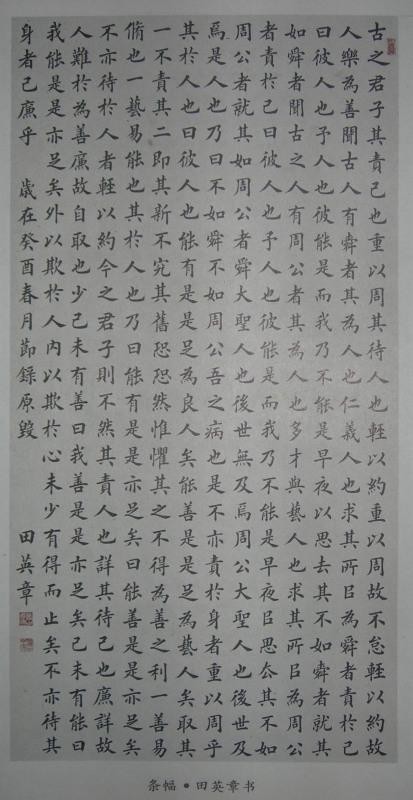 古之君子其責己也重以周其待人也輕以約重以周故不怠輕以約故
人樂為善聞古人有舜者其為人也仁義人也求其所㠯為舜者責於己
曰彼人也予人也彼能是而我乃不能是早夜以思去其不如舜者就其
如舜者聞古之人有周公者其為人也多才與藝人也求其所㠯為周公
者責於己曰彼人也予人也彼能是而我乃不能是早夜㠯思去其不如
周公者就其如周公者舜大聖人也後世無及焉周公大聖人也後世無及
焉是人也乃曰不如舜不如周公吾之病也是不亦責於身者重以周乎
其於人也曰彼人也能有是是足為良人矣能善是是足為藝人矣取其
一不責其二即其新不究其舊恐恐然惟懼其之不得為善之利一善易
脩也一藝易能也其於人也乃曰能有是是亦足矣曰能善是是亦足矣
不亦待於人者輕以約今之君子則不然其責人也詳其待己也廉詳故
人難於為善廉故自取也少己未有善曰我善是是亦足矣己未有能曰
我能是是亦足矣外以欺於人內以欺於心未少有得而止矣不亦待其
身者已廉乎 歲在癸酉春月節錄原毀 田英章
条幅·田英章书